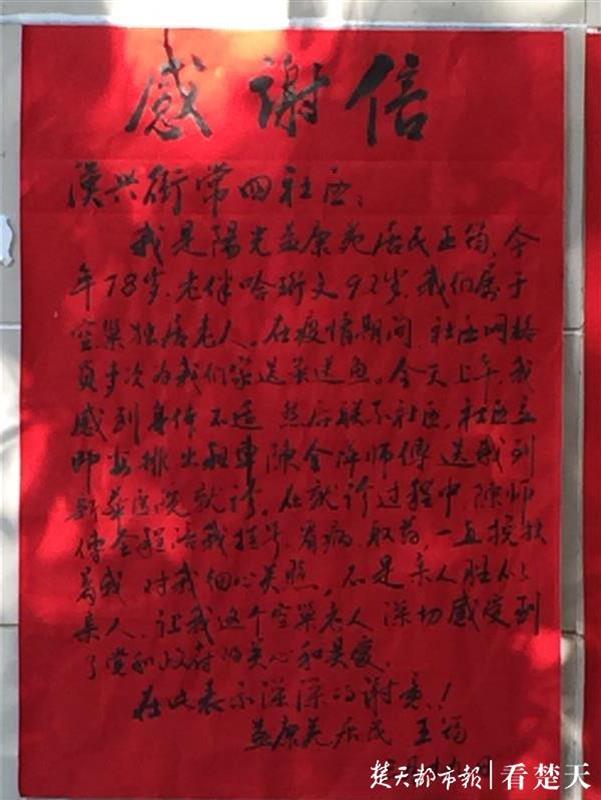 感谢信
漢兴街常四社区：
我是陽光益康苑居民王筠，今
年78岁，老伴哈珩文92岁，我们属于
空巢独居老人。在疫情期间，社区网格
员多次为我们家送菜送鱼。今天上午，我
感到身体不适，然后联系社区，社区立
即安排出租車陳会洋师傅送我到
新华医院就诊。在就诊过程中，陳师
傅全程陪我挂号、看病、取药，一直搀扶
着我，对我细心关照，不是亲人胜似
亲人，让我这个空巢老人深切感受到
了党和政府的关心和关爱。
在此表示深深的谢意！
益康苑居民 王筠
楚天都市報 看楚天